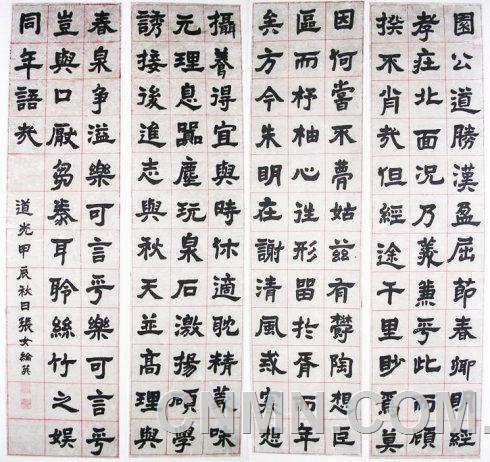 園公道勝漢盈屈節春卿明經
孝莊北面況乃義兼乎此而顧
揆不肖哉但經途千里眇焉莫
因何嘗不夢姑茲有鬱陶想臣
區而杼柚心往形留於胥年
矣方今朱明在謝清風戒寒想
攝養得宜與時休適耽精義味
元理息囂塵玩泉石激揚碩學
誘接後進志與秋天並高理與
春泉争溢樂可言乎樂可言乎
豈與口厭芻豢耳聆絲竹之娛
同年語哉
道光甲辰秋日張女綸英
CNMN.COM.